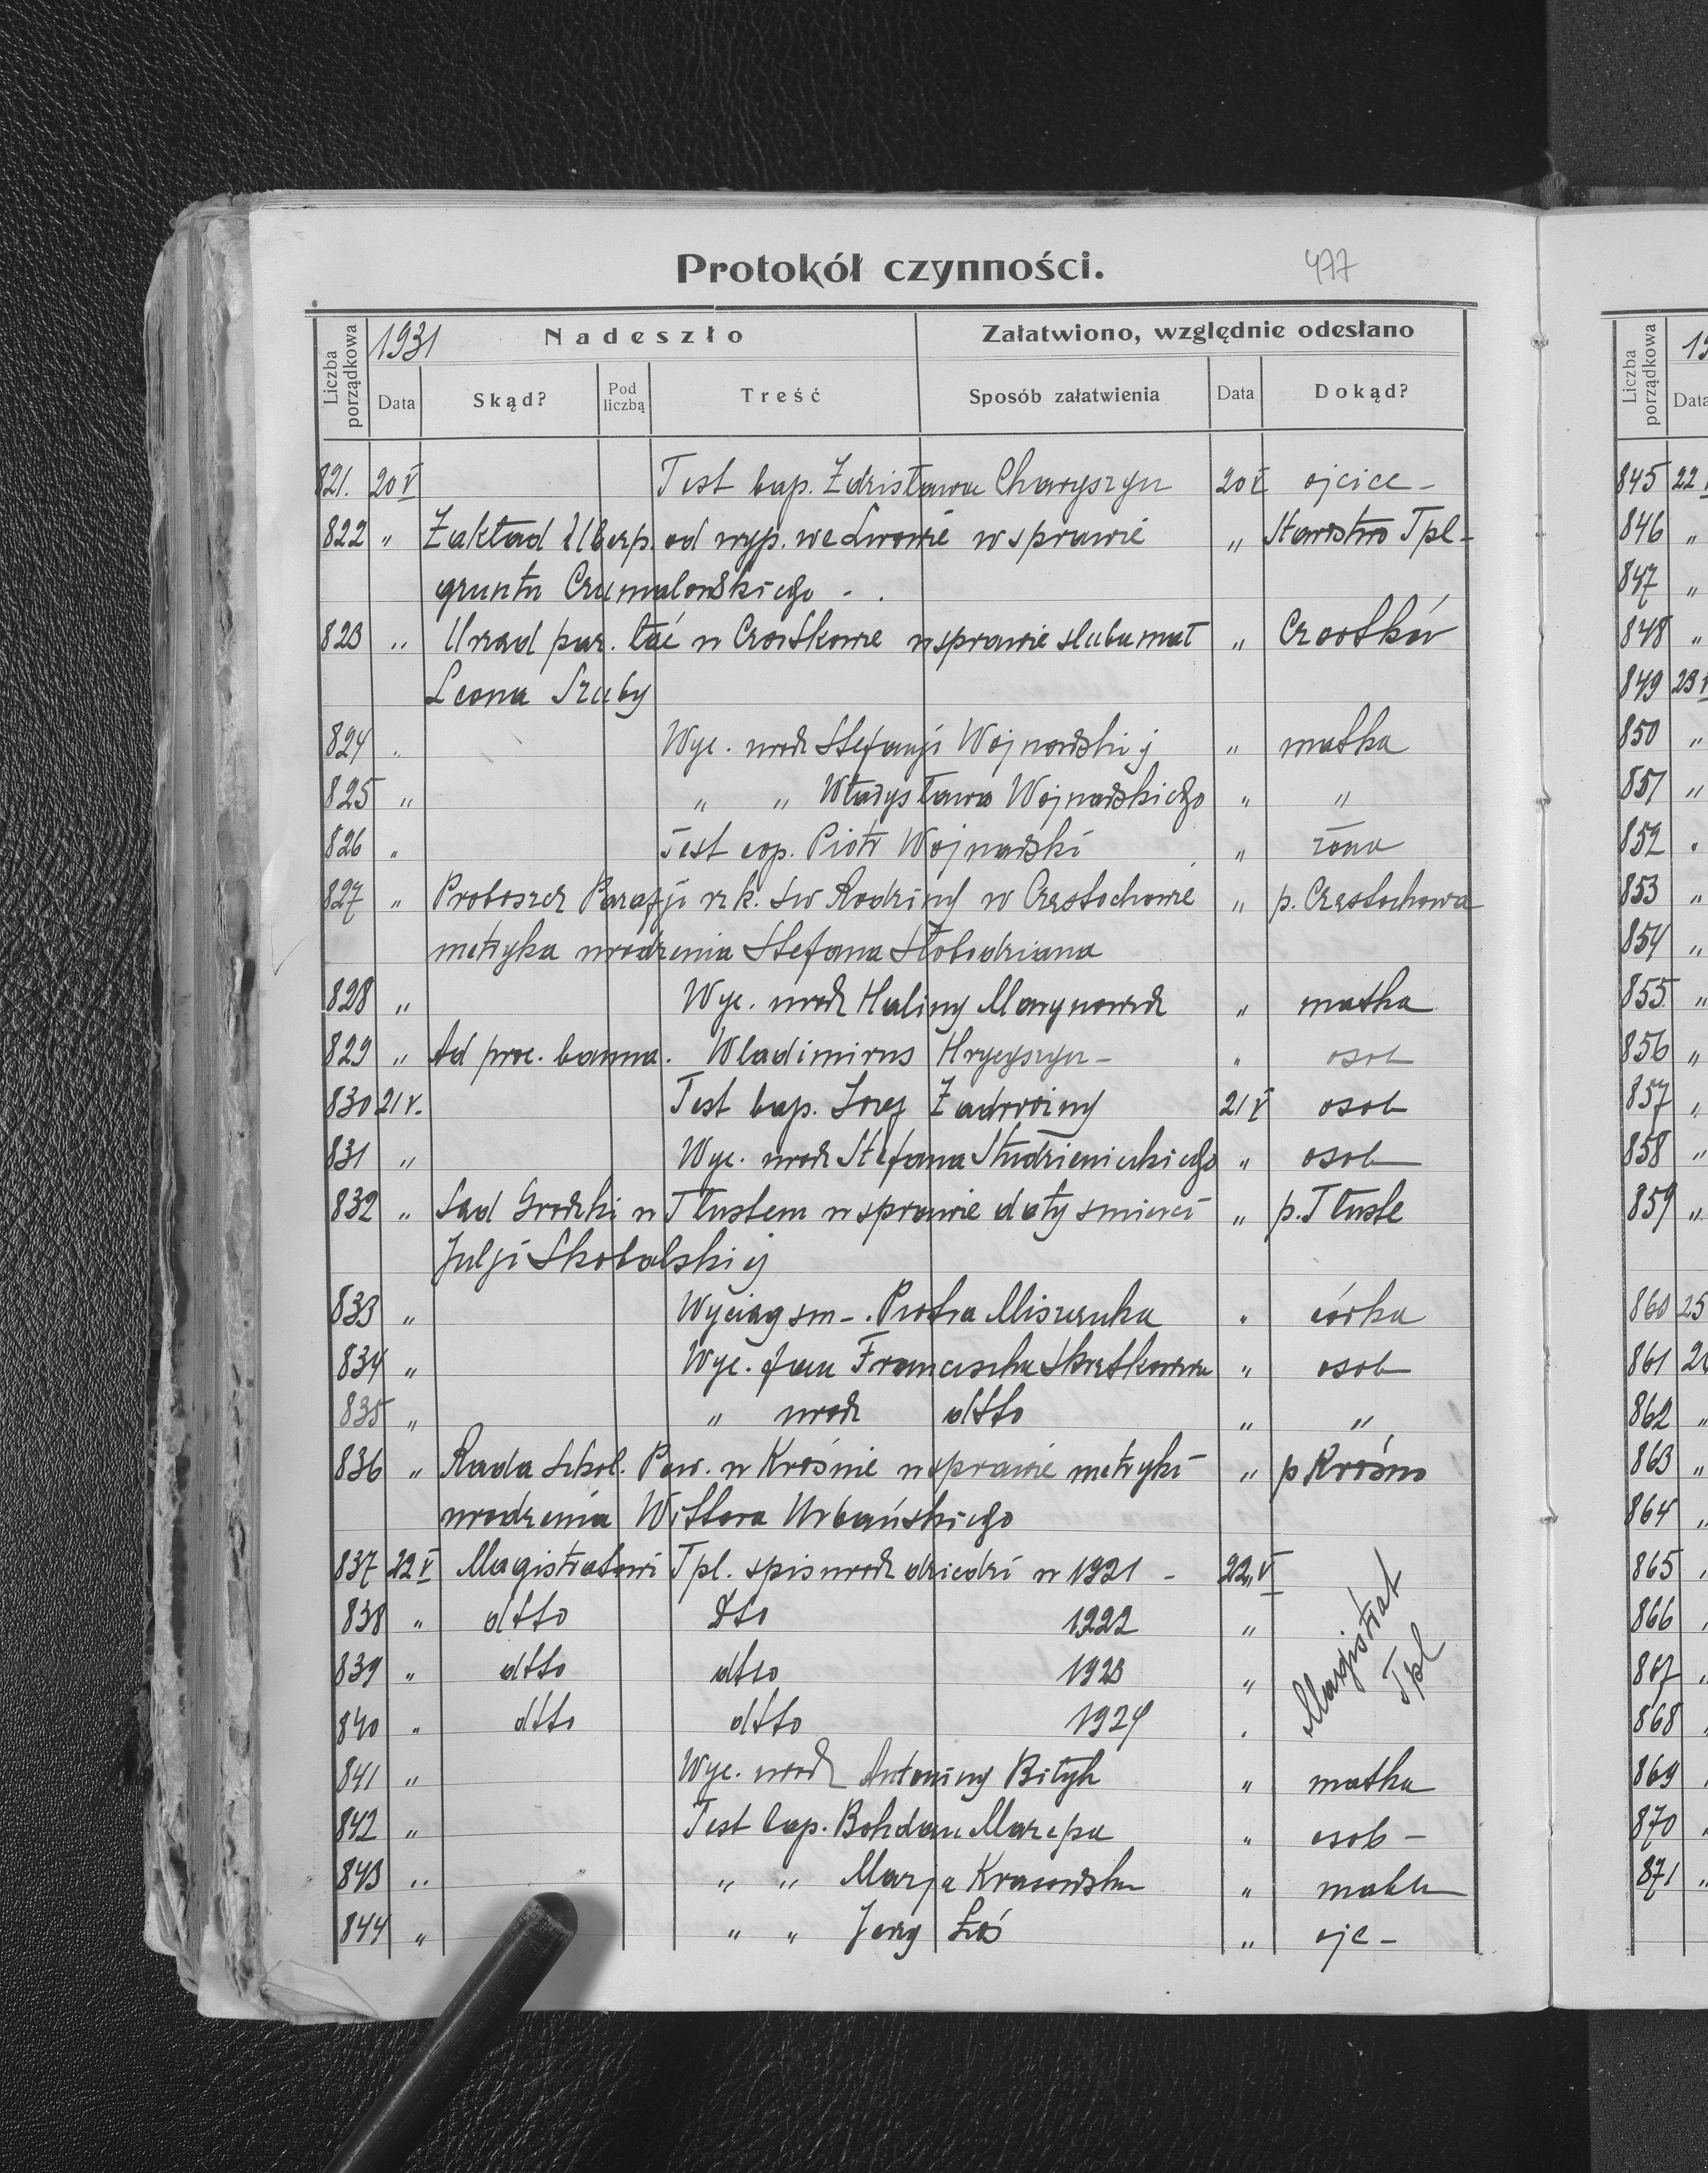 Protokół czynności. 477
Liczba porządkowa 1931 Nadeszło Załatwiono, względnie odesłano
Data Skąd? Pod liczbą Treść Sposób załatwienia Data Dokąd?
821. 20 V Test bap. Zdzisława Charyszyn 20 V ojciec -
822 " Zakład Ubezp. od wyp. we Lwowie w sprawie " Starostwo Tpl -
gruntu Czumalowskiego - .
823 " Urzad par. łać w Czortkowie w sprawie slubu mał " Czortków
Leona Szuby
824 " Wyc. urodz Stefanji Wojnarskiej " matka
825 " " " Władysława Wojnarskiego " "
826 " Test cop. Piotr Wojnarski " żona
827 " Proboszcz Parafji rz k. św Rodziny w Częstochowie " p. Częstochowa
metryka urodzenia Stefana Słobodziana
828 " Wyc. urodz Haliny Marynowicz " matka
829 " Ad proc. banna. Wladimirus Hrycyszyn - " osob
830 21 V. Test bap. Jozef Zadorożny 21 V osob
831 " Wyc. urodz Stefana Studzienickiego " osob
832 " Sąd Grodzki w Tłustem w sprawie daty smierci " p. Tłuste
Julji Skobalskiej
833 " Wyciag sm - . Piotra Miszczuka " córka
834 " Wyc. fam Franciszka " osob
835 " " urodz dtto " "
836 " Rada Szkol. Pow. w Krośnie w sprawie metryki " p Krośno
urodzenia Wiktora Urbańskiego
837 22 V Magistratowi Tpl. spis urodz dzieci w 1921 - 22 V
838 " dtto dto 1922 "
839 " dtto dtto 1923 " Magistrat
Tpl
840 " dtto dtto 1924 "
841 " Wyc. urodz Antoniny Biłyk " matka
842 " Test bap. Bohdan Mazepa " osob -
843 " " " Marja Krasowska " matk
844 " " " Jerzy Łoś " ojc -
Liczba porządkowa
Data
845 22
846 "
847 "
848 "
849 23
850 "
851 "
852 "
853 "
854 "
855 "
856 "
857 "
858 "
859 "
860 25
861
862 "
863 "
864 "
865
866
867
868
869
870
871 "